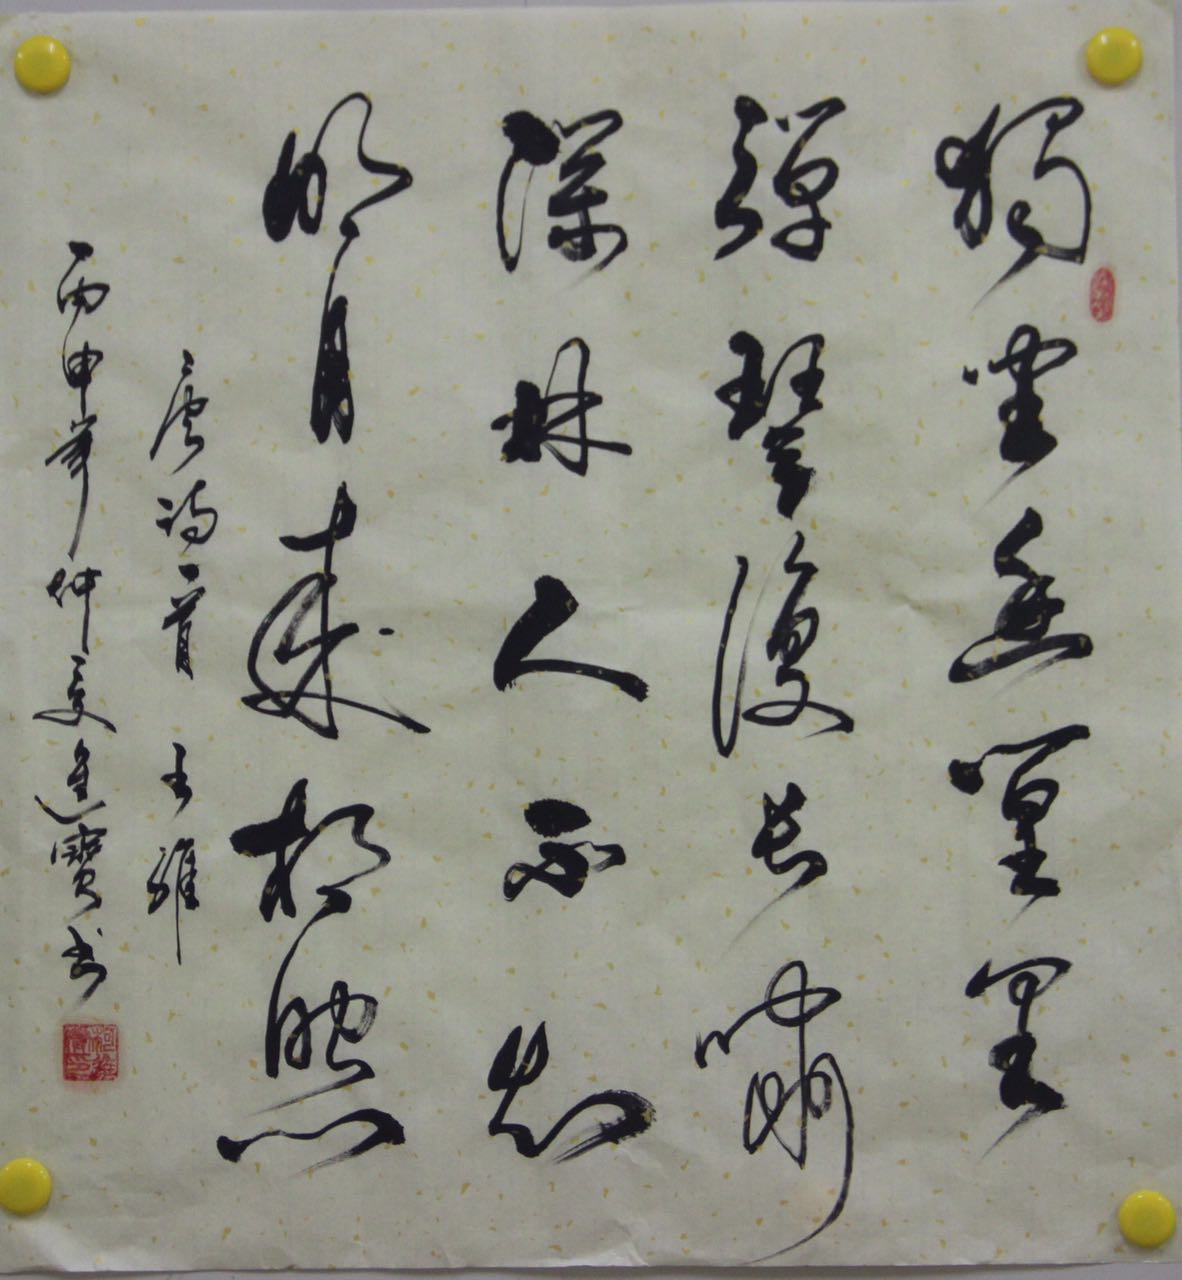 獨坐幽篁里
彈琴復長嘯
深林人不知
明月來相照
唐詩一首 王維
丙申年仲夏進寶書